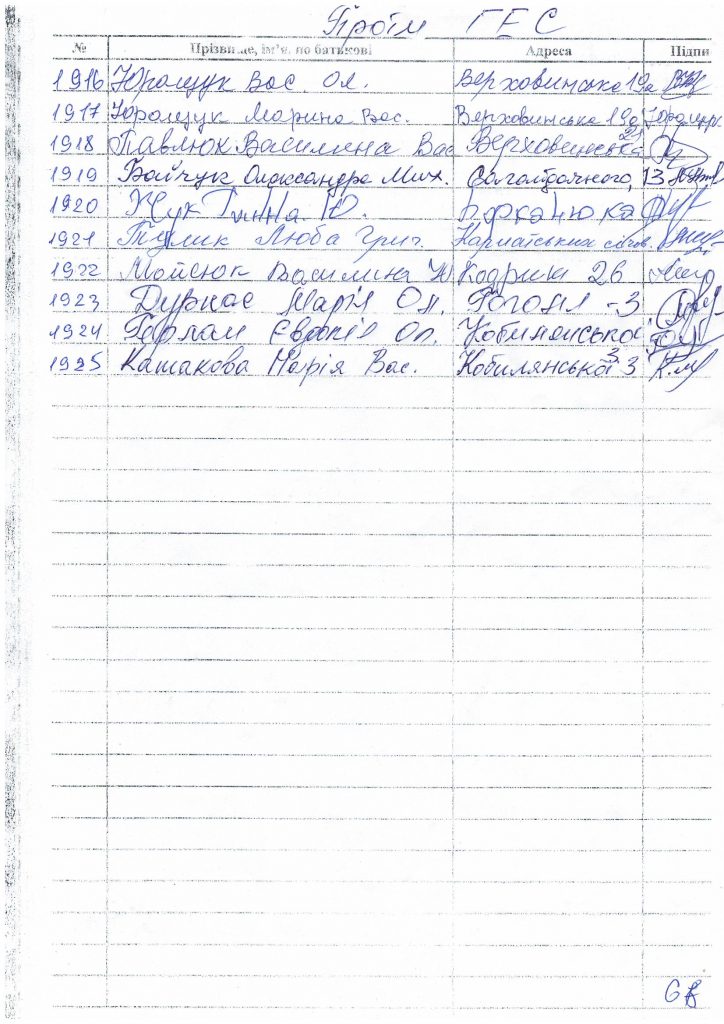 Проти ГЕС
№ Прізвище, ім'я, по батькові Адреса Підпи
1916 Юращук Вас. Ол. Верховинська 19а
1917 Юращук Марина Вас. Верховинська 19а Юращук
1918 Павлюк Василина Вас Верховинська 21
1919 Бойчук Олександра Мих. Сагайдачного, 13
1920 Жук Ганна Ю.
1921 Тулик Люба Григ. Карпатських
1922 Мойсюк Василина Ю Кодрик 26
1923 Дуркас Марія Ол. Гоголя - 3
1924 Євдокія Ол. Кобилянська 3
1925 Кашакова Марія Вас. Кобилянська 3